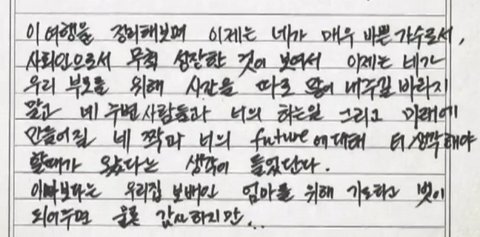 이 여행을 정리해보며 이제는 네가 매우 바쁜 가수로서,
사회인으로서 무척 성장한 것이 보여서 이제는 네가
우리 부모를 위해 시간을 따로 많이 내주길 바라지
말고 네 주변 사람들과 너의 하는일 그리고 미래에
만들어질 네 짝과 너의 future에 대해 더 생각해야
할때가 왔다는 생각이 들었단다.
아빠보다는 우리집 보배인 엄마를 위해 기도하고 벗이
되어주면 물론 감사하지만...